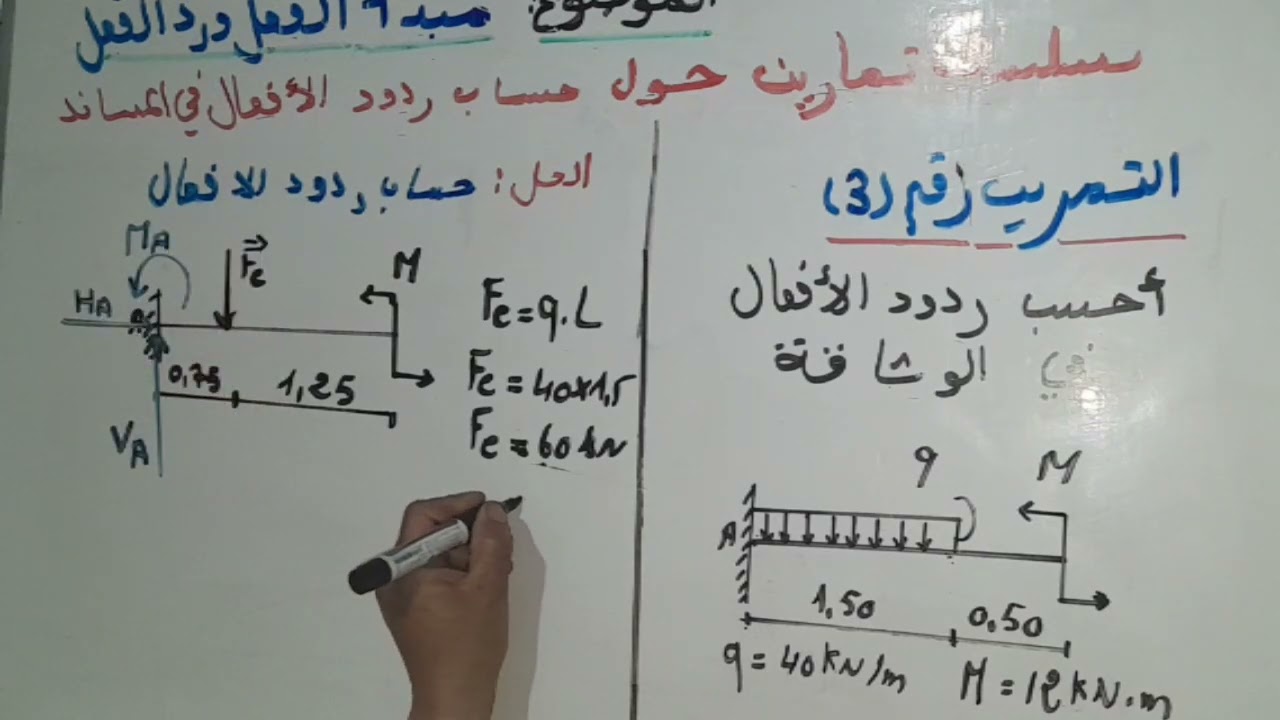 الموضوع: مبدأ الفعل ورد الفعل
سلسلة تمارين حول حساب ردود الأفعال في المساند
التمرين رقم (3)
أحسب ردود الأفعال
في الوشافتة
q M
A
1,50 0,50
q = 40 kN/m M = 12 kN.m
الحل: حساب ردود الافعال
MA Fe M
HA
0,75 1,25
VA
Fe = q.L
Fe = 40x1,5
Fe = 60 kN